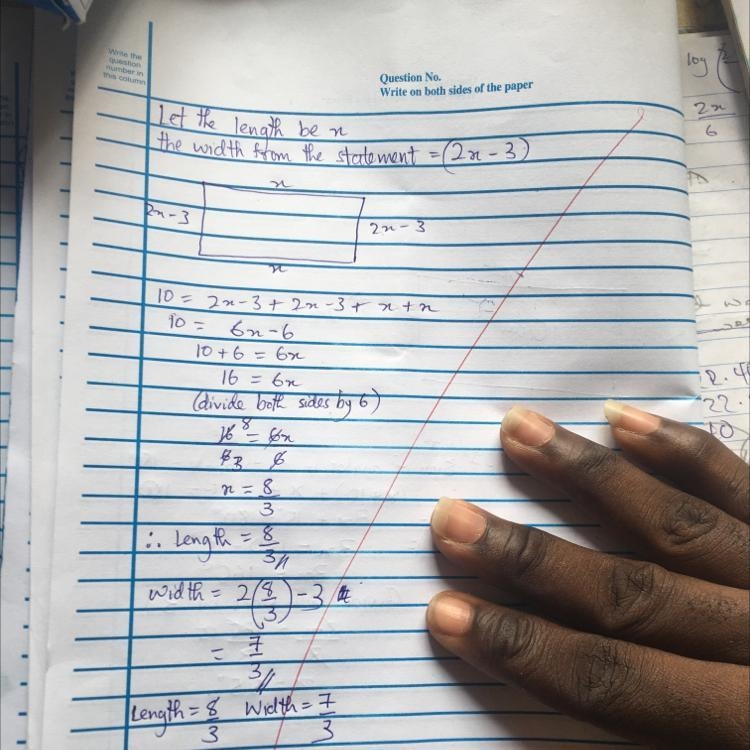 Write the
question
number in
this column
Question No.
Write on both sides of the paper
Let the length be x
the width from the statement = (2x - 3)
x
2x - 3
2x - 3
x
10 = 2x - 3 + 2x - 3 + x + x
10 = 6x - 6
10 + 6 = 6x
16 = 6x
(divide both sides by 6)
16 8 = 6x
6 3 6
x = 8
3
∴ Length = 8
3
Width = 2(8/3) - 3
= 7
3
Length = 8/3 Width = 7/3
log
2x
6
22.
10